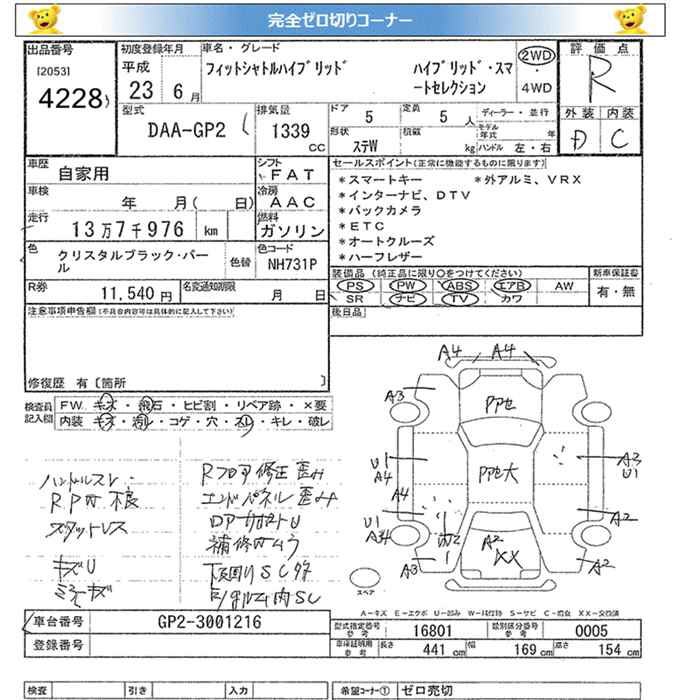 完全ゼロ切りコーナー
出品番号
[2053]
4228
初度登録年月
平成
23 6月
車名・グレード
フィットシャトルハイブリッド
ハイブリッド・スマートセレクション
2WD
・
4WD
評価点
R
型式
DAA-GP2
排気量
1339
CC
ドア
5
定員
5人
ディーラー・並行
モデル年式 年
形状
ステW
積載
kg
ハンドル 左・右
外装
内装
D
C
車歴
自家用
シフト
FAT
車検
年 月( 日)
冷房
AAC
走行
13万7千976 km
燃料
ガソリン
色
クリスタルブラック・パール
色替
色コード
NH731P
R券
11,540円
名変通知期限
月 日
セールスポイント(正常に機能するものに限ります)
*スマートキー *外アルミ、VRX
*インターナビ、DTV
*バックカメラ
*ETC
*オートクルーズ
*ハーフレザー
装備品(純正品に限り○をつけてください)
PS PW ABS エアB AW
SR ナビ TV カワ
新車保証書
有・無
後日品
注意事項申告欄(不具合内容可は具体的に記入して下さい)
修復歴 有〔箇所 〕
検査員記入欄
FW キズ・飛石・ヒビ割・リペア跡・×要
内装 キズ・汚レ・コゲ・穴・スレ・キレ・破レ
ハンドルスレ
RPカ不良
スタットレス
キズU
ミラーキズ
Rフロア修正歪み
エンドパネル歪み
ロアーサポートU
補修内ムラ
下回りSCサビ
内SC
A4 A4
A3
PP色
U1
A4
A4
PP色大
A3
U1
U1
A34
A2
A2
XX
A3
A2
スペア
A-キズ E-エクボ U-凹み W-補修跡 S-サビ C-腐食 XX-交換済
車台番号
GP2-3001216
登録番号
型式指定番号参考
16801
類別区分番号参考
0005
車検証明用参考
長さ 441 cm 幅 169 cm 高さ 154 cm
検査
引き
入力
希望コーナー①
ゼロ売切